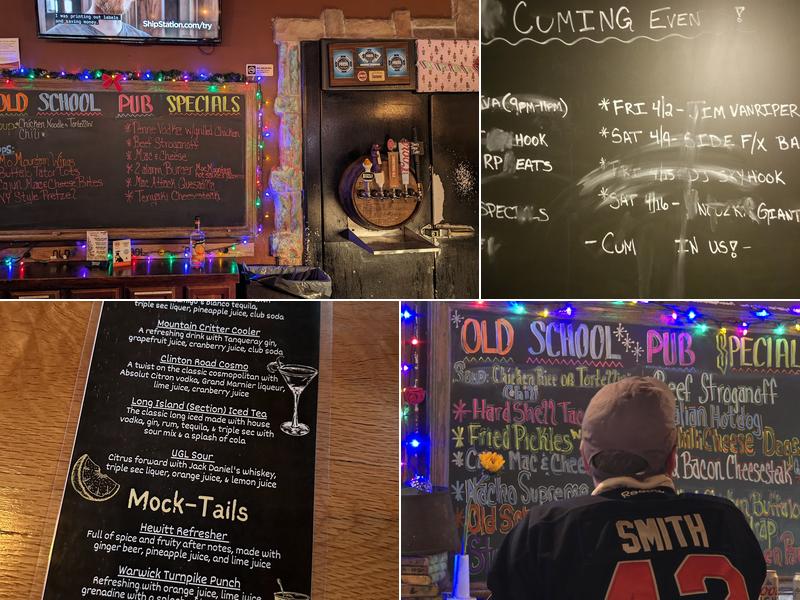 I was printing out labels
and saving money.
ShipStation.com/try
OLD SCHOOL PUB SPECIALS
Chicken Noodle Tortellini
Chili
* Penne Vodka w/grilled Chicken
* Beef Stroganoff
* Mac & Cheese
* 2 alarm Burger
* Mac Attack Quesadilla
* Teriyaki Cheesesteak
Mo Mountain Wings
Buffalo Tator Tots
Cajun Mac & Cheese Bites
NY Style Pretzel
CUMING EVEN !
(9pm-11pm)
HOOK
EATS
* FRI 4/2- JIM VANRIPER
* SAT 4/9- SIDE F/X BA
* FRI 4/15- DJ SKYHOOK
* SAT 4/16- GIANT
- CUM IN US! -
triple sec liquer, pineapple juice, club soda
Mountain Critter Cooler
A refreshing drink with Tanqueray gin,
grapefruit juice, cranberry juice, club soda
Clinton Road Cosmo
A twist on the classic cosmopolitan with
Absolut Citron vodka, Grand Marnier liqueur,
lime juice, cranberry juice
Long Island (section) Iced Tea
The classic long iced made with house
vodka, gin, rum, tequila, & triple sec with
sour mix & a splash of cola
UGL Sour
Citrus forward with Jack Daniel's whiskey,
triple sec liquer, orange juice, & lemon juice
Mock-Tails
Hewitt Refresher
Full of spice and fruity after notes, made with
ginger beer, pineapple juice, and lime juice
Warwick Turnpike Punch
Refreshing with orange juice, lime juice,
grenadine with a
* OLD SCHOOL PUB SPECIAL
Soup: Chicken Rice or Tortell
Chili
* Hard Shell Tac
* Fried Pickles
Mac & Chee
* Nacho Supreme
* Old Sc
Beef Stroganoff
Italian Hotdog
Chili Cheese Dogs
Bacon Cheesesteak
Reebok
SMITH
42